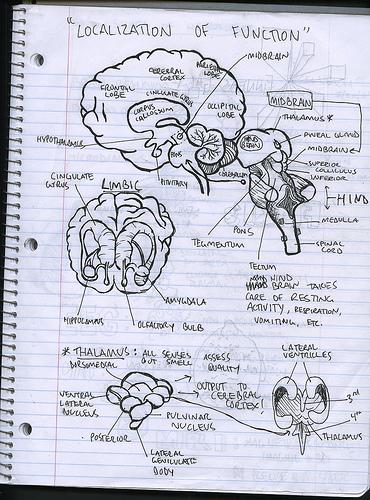 "LOCALIZATION OF FUNCTION"
MIDBRAIN
PARIETAL
LOBE
CEREBRAL
CORTEX
FRONTAL
LOBE
CINGULATE GYRUS
CORPUS
CALLOSUM
OCCIPITAL
LOBE
MIDBRAIN
THALAMUS *
PINEAL GLAND
MIDBRAIN
HYPOTHALAMUS
PONS
PITUITARY
CEREBELLUM
HIND
BRAIN
SUPERIOR
COLLICULUS
INFERIOR
HIND
CINGULATE
GYRUS
LIMBIC
PONS
MEDULLA
TEGMENTUM
SPINAL
CORD
TECTUM
HIND
BRAIN TAKES
CARE OF RESTING
ACTIVITY, RESPIRATION,
VOMITING, ETC.
AMYGDALA
HIPPOCAMPUS
OLFACTORY BULB
* THALAMUS: ALL SENSES
BUT SMELL
ASSESS
QUALITY
DORSOMEDIAL
LATERAL
VENTRICLES
OUTPUT TO
CEREBRAL
CORTEX!
VENTRAL
LATERAL
NUCLEUS
3rd
4th
PULVINAR
NUCLEUS
THALAMUS
POSTERIOR
LATERAL
GENICULATE
BODY